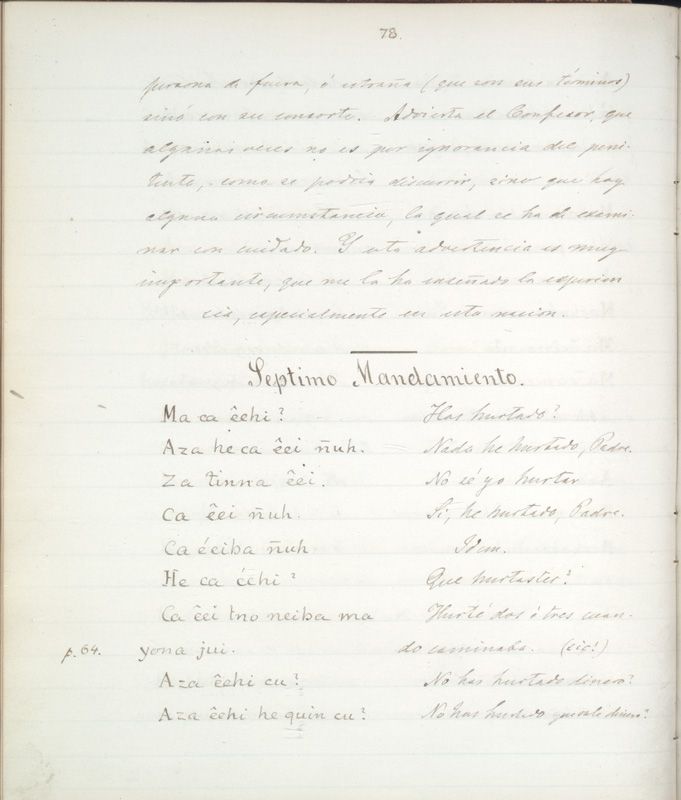 78.
persona de fuera, ó estraña (que son sus términos)
sinó con su consorte. Advierta el Confesor, que
algunas veces no es por ignorancia del peni-
tente, como se podria discurrir, sino que hay
alguna circumstancia, la qual se ha de exami-
nar con cuidado. Y esta advertencia es muy
importante, que me la ha enseñado la experien
cia, especialmente en esta nacion.
Septimo Mandamiento.
Ma ca êehi? Has hurtado?
Aza he ca êei ñuh. Nada he hurtado, Padre.
Za tinna êei. No sé yo hurtar
Ca êei ñuh. Si, he hurtado, Padre.
Ca éeiba ñuh Idem.
He ca éehi? Que hurtastes?
Ca êei tno neiba ma Hurté dos ó tres cuan-
p. 64. yona jui. do caminaba. (sic!)
Aza êehi cu? No has hurtado dinero?
Aza êehi he quin cu? No has hurtado que vale dinero?